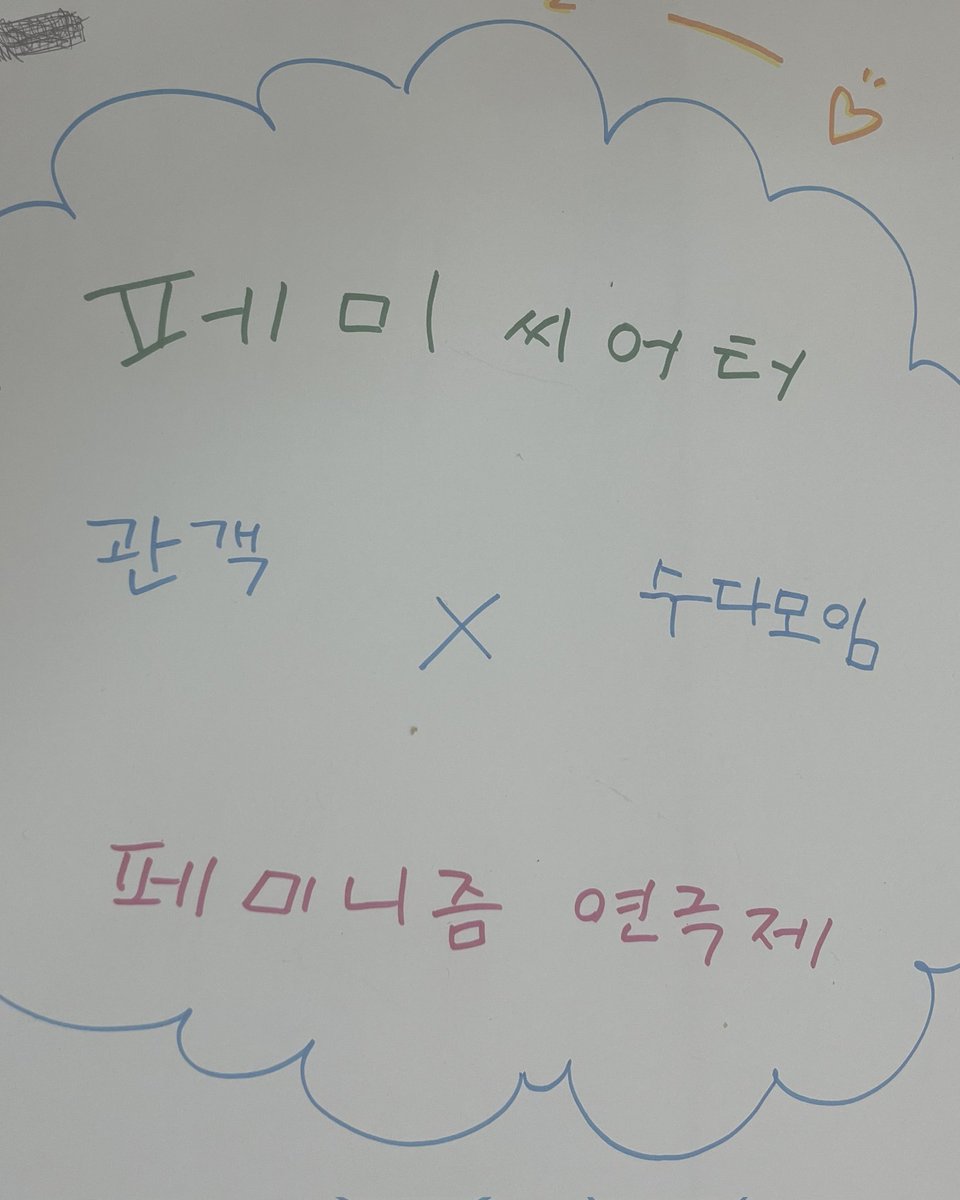 페미씨어터
관객 X 수다모임
페미니즘 연극제